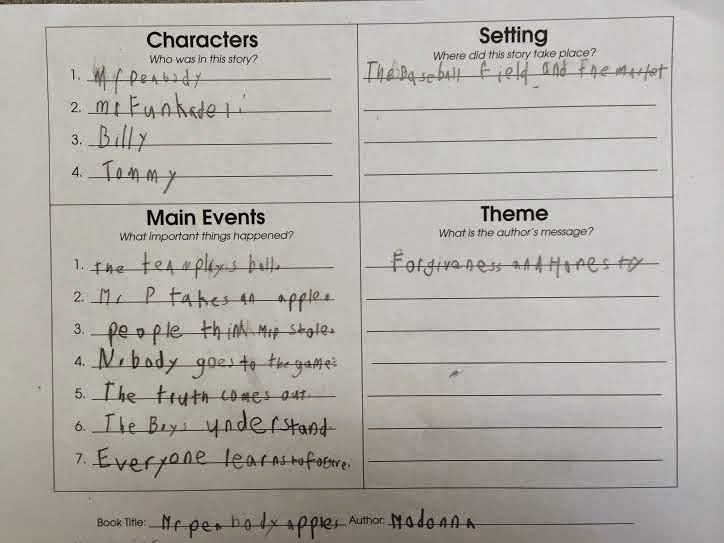 Characters
Who was in this story?
1. Mr Peabody
2. mr Funkadeli
3. Billy
4. Tommy
Setting
Where did this story take place?
The Baseball field and the market
Main Events
What important things happened?
1. the team plays ball.
2. Mr P takes an apple.
3. people think Mr P stole.
4. Nobody goes to the game.
5. The truth comes out.
6. The Boys understand.
7. Everyone learns to forgive.
Theme
What is the author's message?
Forgiveness and Honesty
Book Title: Mr pea body apples Author: Madonna